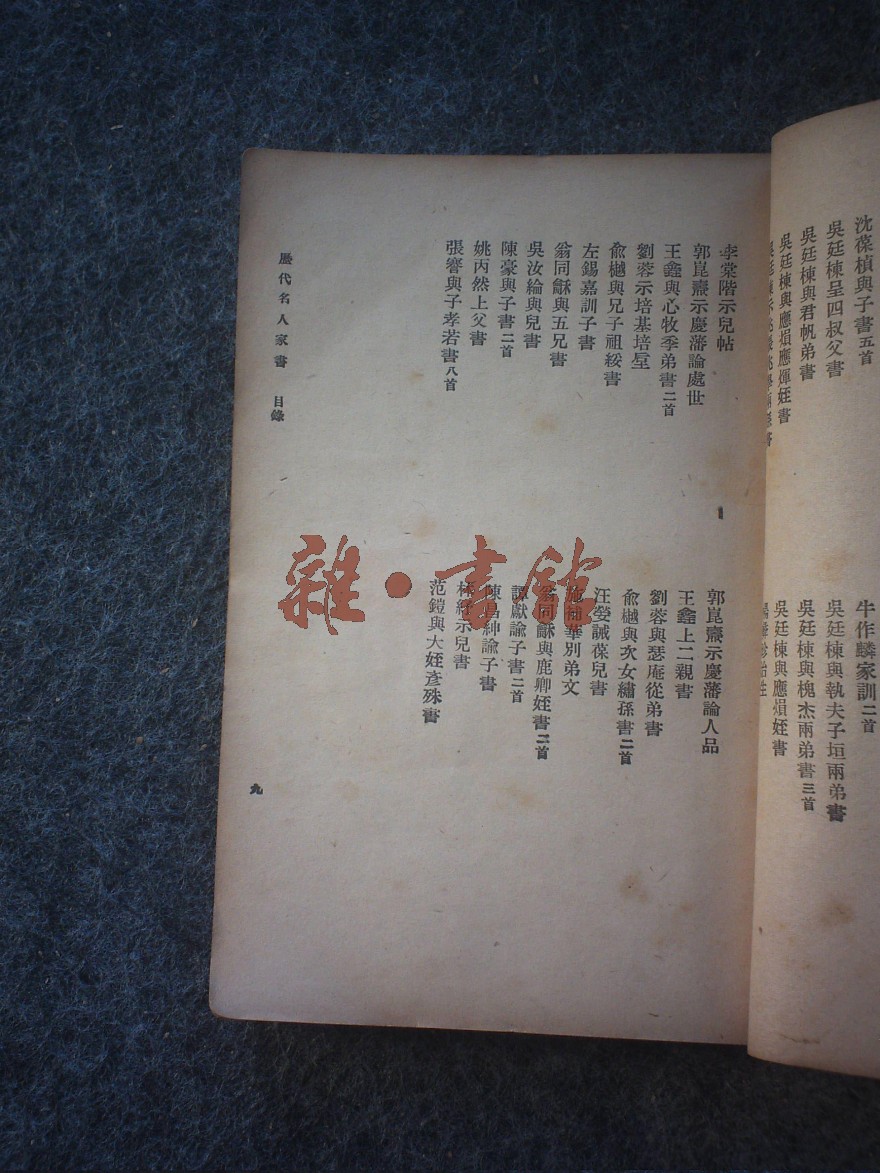 沈葆楨與子書五首
牛作麟家訓二首
吳廷棟呈四叔父書
吳廷棟與執夫子垣兩弟書
吳廷棟與君帆弟書
吳廷棟與槐杰兩弟書三首
吳廷棟與應熉應煇姪書
吳廷棟與應熉姪書
李棠階示兒帖
郭崑燾示慶藩論人品
郭崑燾示慶藩論處世
王鑫上二親書
王鑫與心牧季弟書二首
劉蓉與瑟庵從弟書
劉蓉示培基培垕
俞樾與次女繡孫書二首
俞樾與兄子祖綏書
汪嫈誡葆兒書
左錫嘉訓子書
施補華別弟文
翁同龢與五兄書
翁同龢與鹿卿姪書二首
吳汝綸與兒書
譚獻諭子書二首
陳豪與子書二首
陳昌紳諭子書
姚丙然上父書
林紓示兒書
張謇與子孝若書八首
范鎧與大姪彥殊書
歷代名人家書 目錄
九
雜·書館